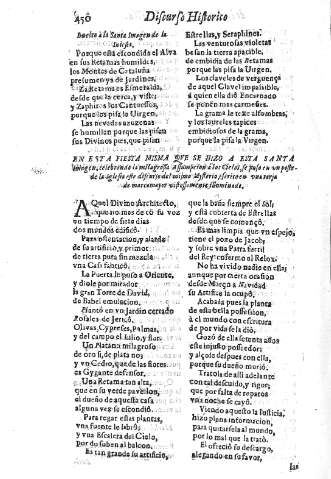 450 Discurso Historico
Buelve à la Santa Imagen de la
Iglesia.
Porque està escondida el Alva
en sus Retamas humildes,
los Montes de Cataluña
presumen ya de Jardines.
Za Retama es Esmeralda,
desde que la cerca, y viste;
y Zaphiros los Cantuessos,
porque los pisa la Virgen.
Las nevadas azuzenas
se humillan porque las pisan
sus Divinos pies, que pisan
Estrellas, y Seraphines.
Las venturosas violetas
besan la tierra apacible,
de embidia de las Retamas
porque las pisa la Virgen.
Los claveles de verguença
de aquel Clavel impassible,
à quien ella diò Encarnado
se ponen mas carmesies.
La grama la texe alfombras,
y los laureles apacibles
embidiosos de la grama,
porque la pisa la Virgen.
EN ESTA FIESTA MISMA QUE SE HIZO A ESTA SANTA
Imagen, celebrando la milagrosa Assumpcion à los Cielos, se puso en un poste
de la Iglesia este discurso del mismo Mysterio, escrito en una
de marca mayor vistosamente iluminada.
AQuel Divino Architecto,
que no mas de cõ su voz
en tiempo de siete dias
dos mundos edificò.
Para ostentacion, y alarde
de su artificio, y primor
de tierra pura sin mezcla
una Casa fabricò.
La Puerta le puso à Oriente,
y diole por mirador
la gran Torre de David,
de Babel emulacion.
Plantò en un Jardin cerrado
Rosales de Jericò,
Olivas, Cypreses, Palmas,
y del campo el Lilio, y flor.
Un Platano milagroso
de oro sì, de plata no;
y un Cedro, que de las flores
es Gygante defensor.
Una Retama tan alta,
que en su verde pavellon,
el dueño de aquesta casa
alguna vez se escondiò.
Para regar estas plantas,
una fuente le labrò;
y una Escalera del Cielo,
por do suben al balcon.
Es tan grande su artificio,
que la baña siempre el Sol;
y està cubierta de Estrellas
desde que se començò.
Es mas limpia que un espejo,
tiene el pozo de Jacob;
y sobre una Patria fertil
del Rey conserto el Relox.
No ha vivido nadie en ella;
aunque por cierta ocasion
desde Março à Navidad
su Artifice la ocupò.
Acabada pues la planta
de aquella possession,
à el mundo con escritura
de por vida se la diò.
Gozò de ella setenta años
este injusto posseedor;
y alçose despues con ella,
porque su dueño muriò.
Tratola de allí adelante
con tal descuido, y rigor;
que por falta de reparos
una noche se cayò.
Viendo aquesto la Justicia,
hizo plena informacion,
para quitarsela al mundo,
por lo mal que la tratò.
El ofreciò su descargo,
alegando en su favor,
las